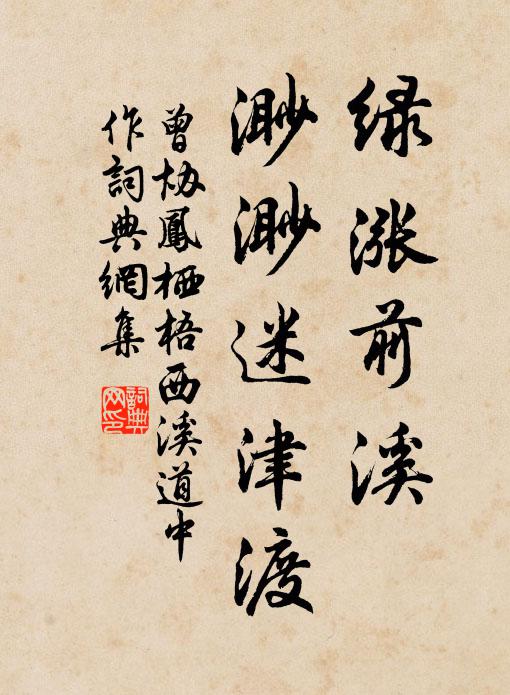 绿涨前溪
渺渺迷津渡
曾协鳳栖梧西溪道中
作詞典網集
詞典
网印